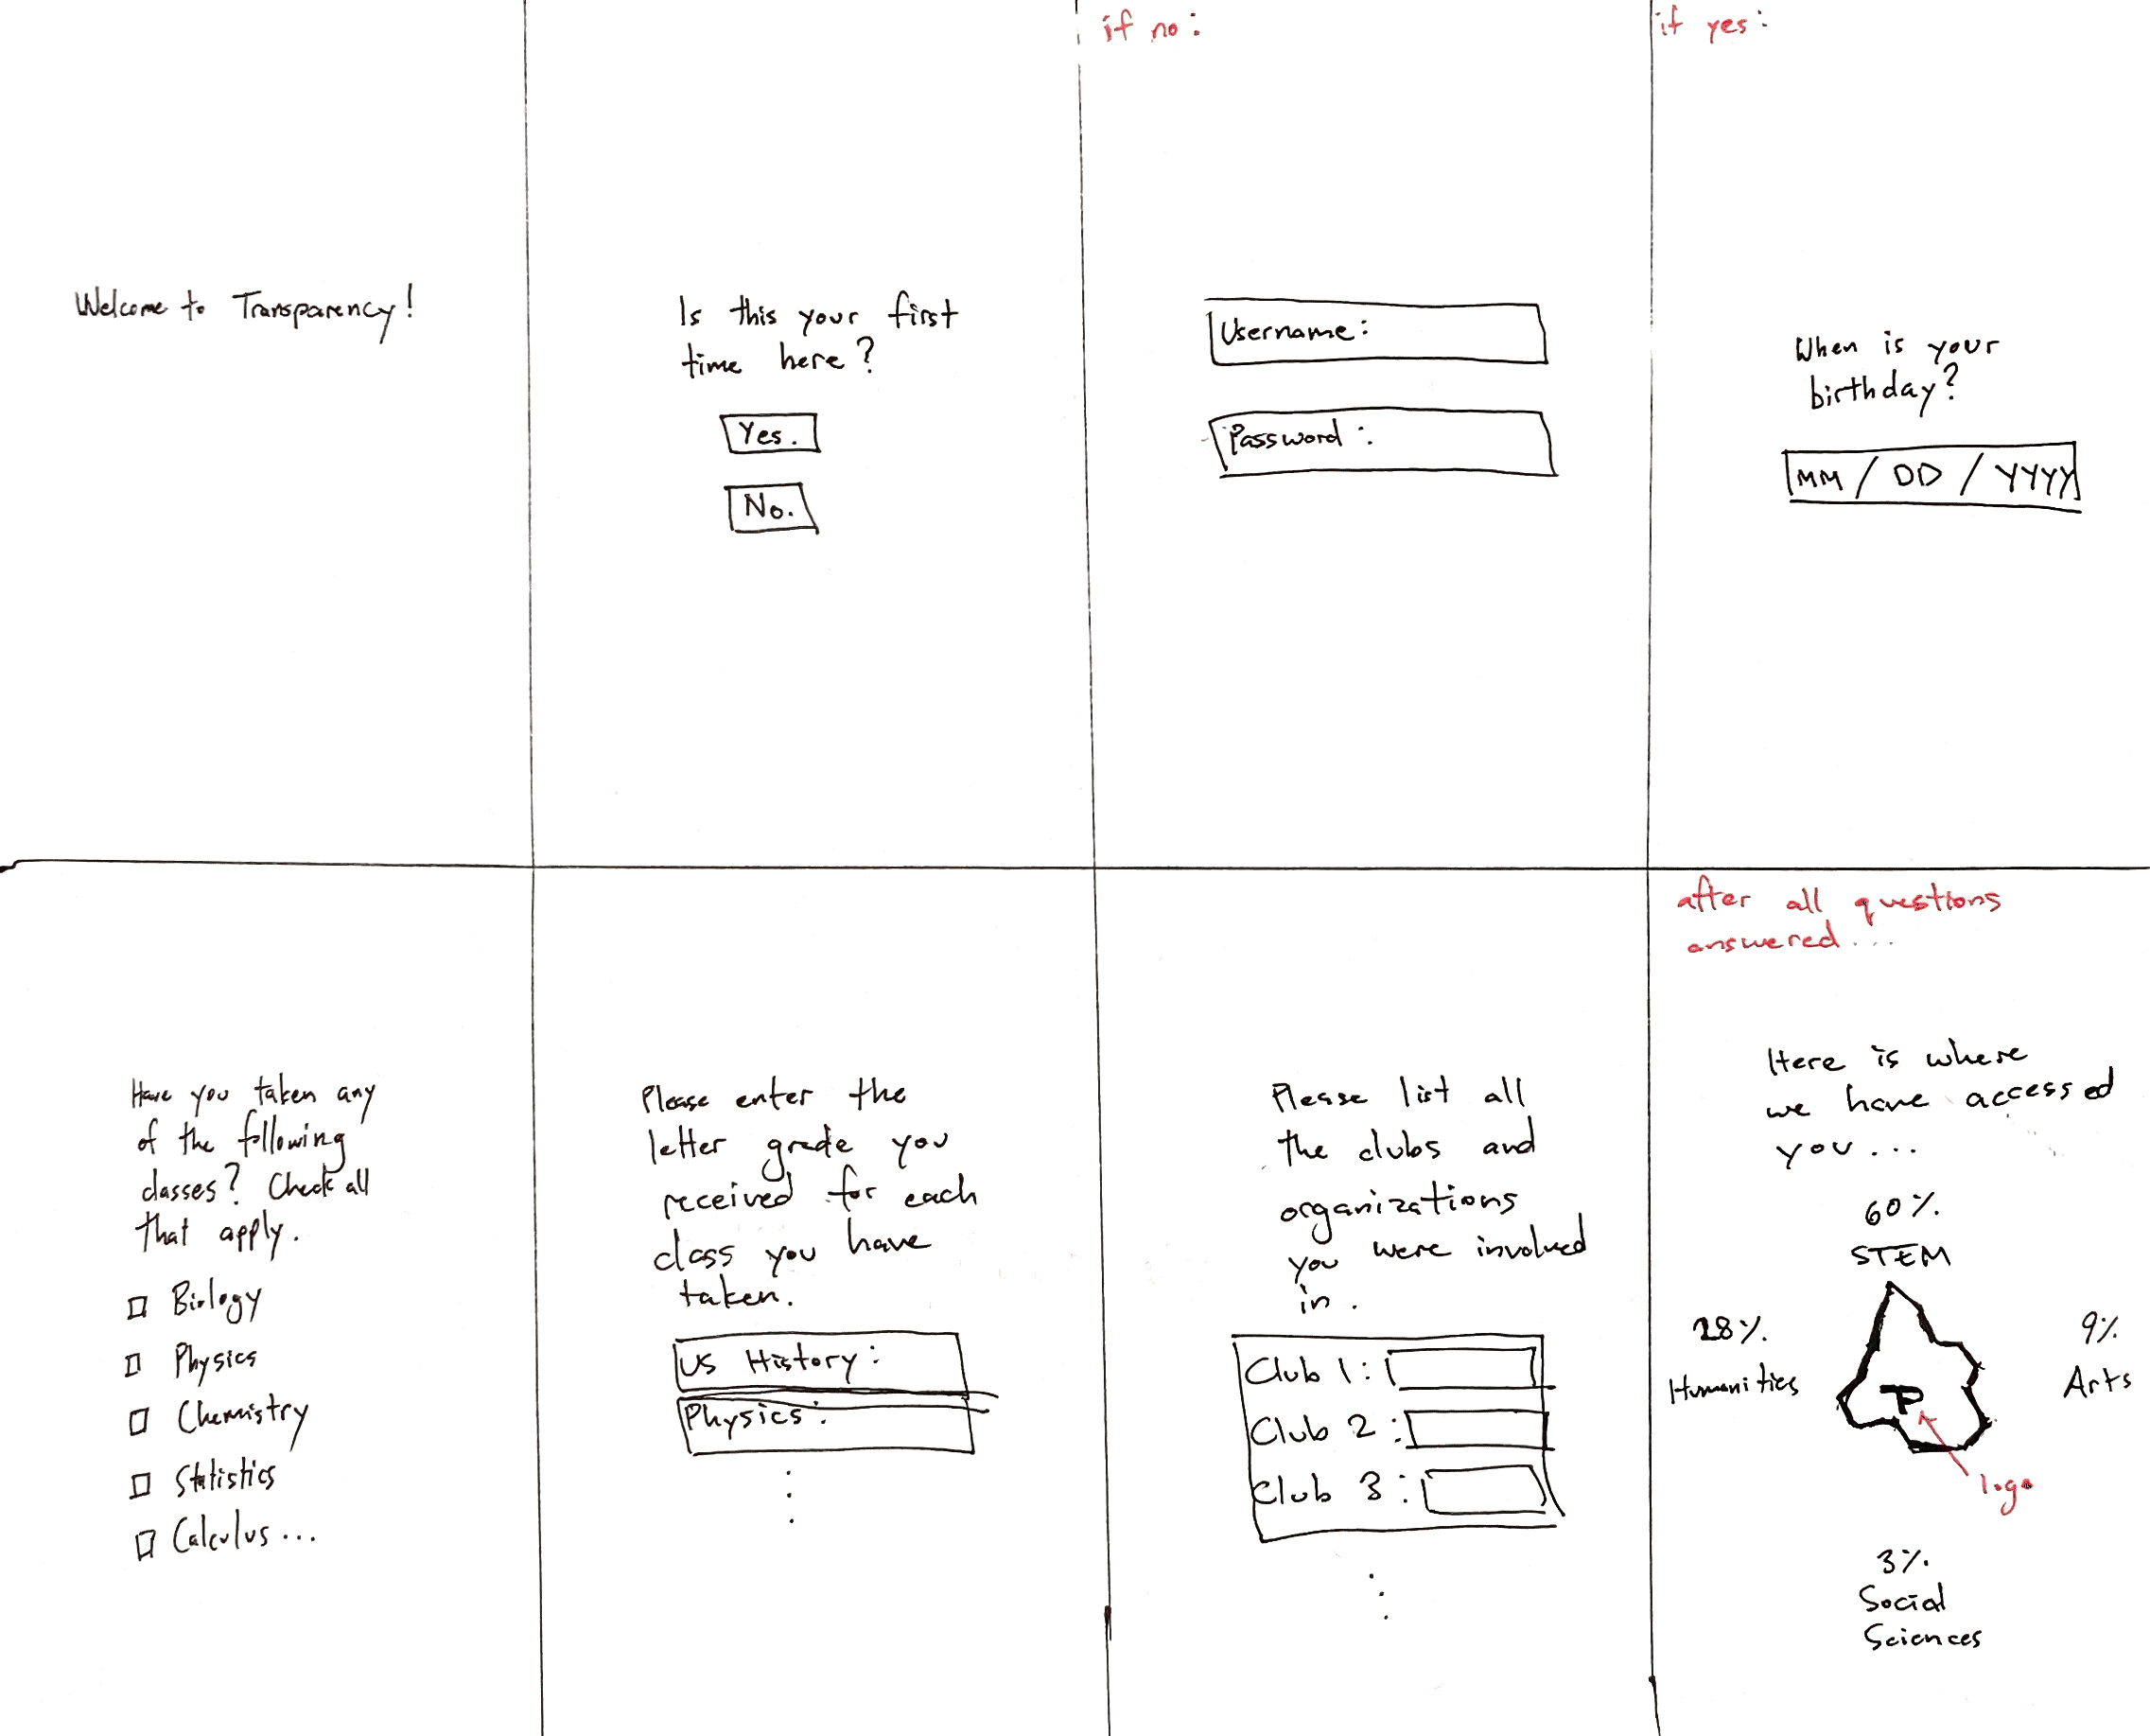 Welcome to Transparency!
Is this your first
time here?
Yes.
No.
if no:
Username:
Password:
if yes:
When is your
birthday?
MM / DD / YYYY
Have you taken any
of the following
classes? Check all
that apply.
Biology
Physics
Chemistry
Statistics
Calculus...
Please enter the
letter grade you
received for each
class you have
taken.
US History:
Physics:
Please list all
the clubs and
organizations
you were involved
in.
Club 1:
Club 2:
Club 3:
after all questions
answered...
Here is where
we have accessed
you...
60%
STEM
28%
Humanities
9%
Arts
logo
3%
Social
Sciences